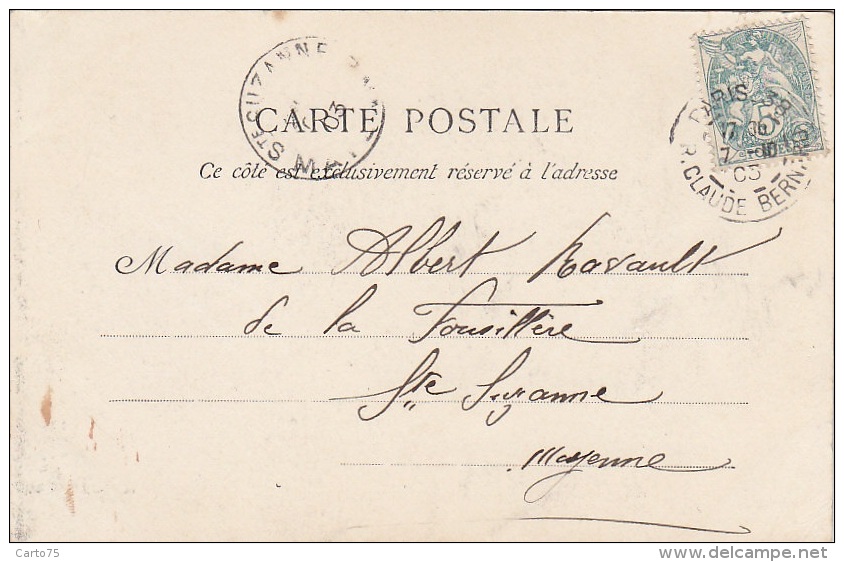 STE SUZANNE
CARTE POSTALE
Ce côté est exclusivement réservé à l'adresse
PARIS 38
03
R. CLAUDE BERN
Madame Albert Ravault
de la
Ste Suzanne
Mayenne
Carto75
www.delcampe.net